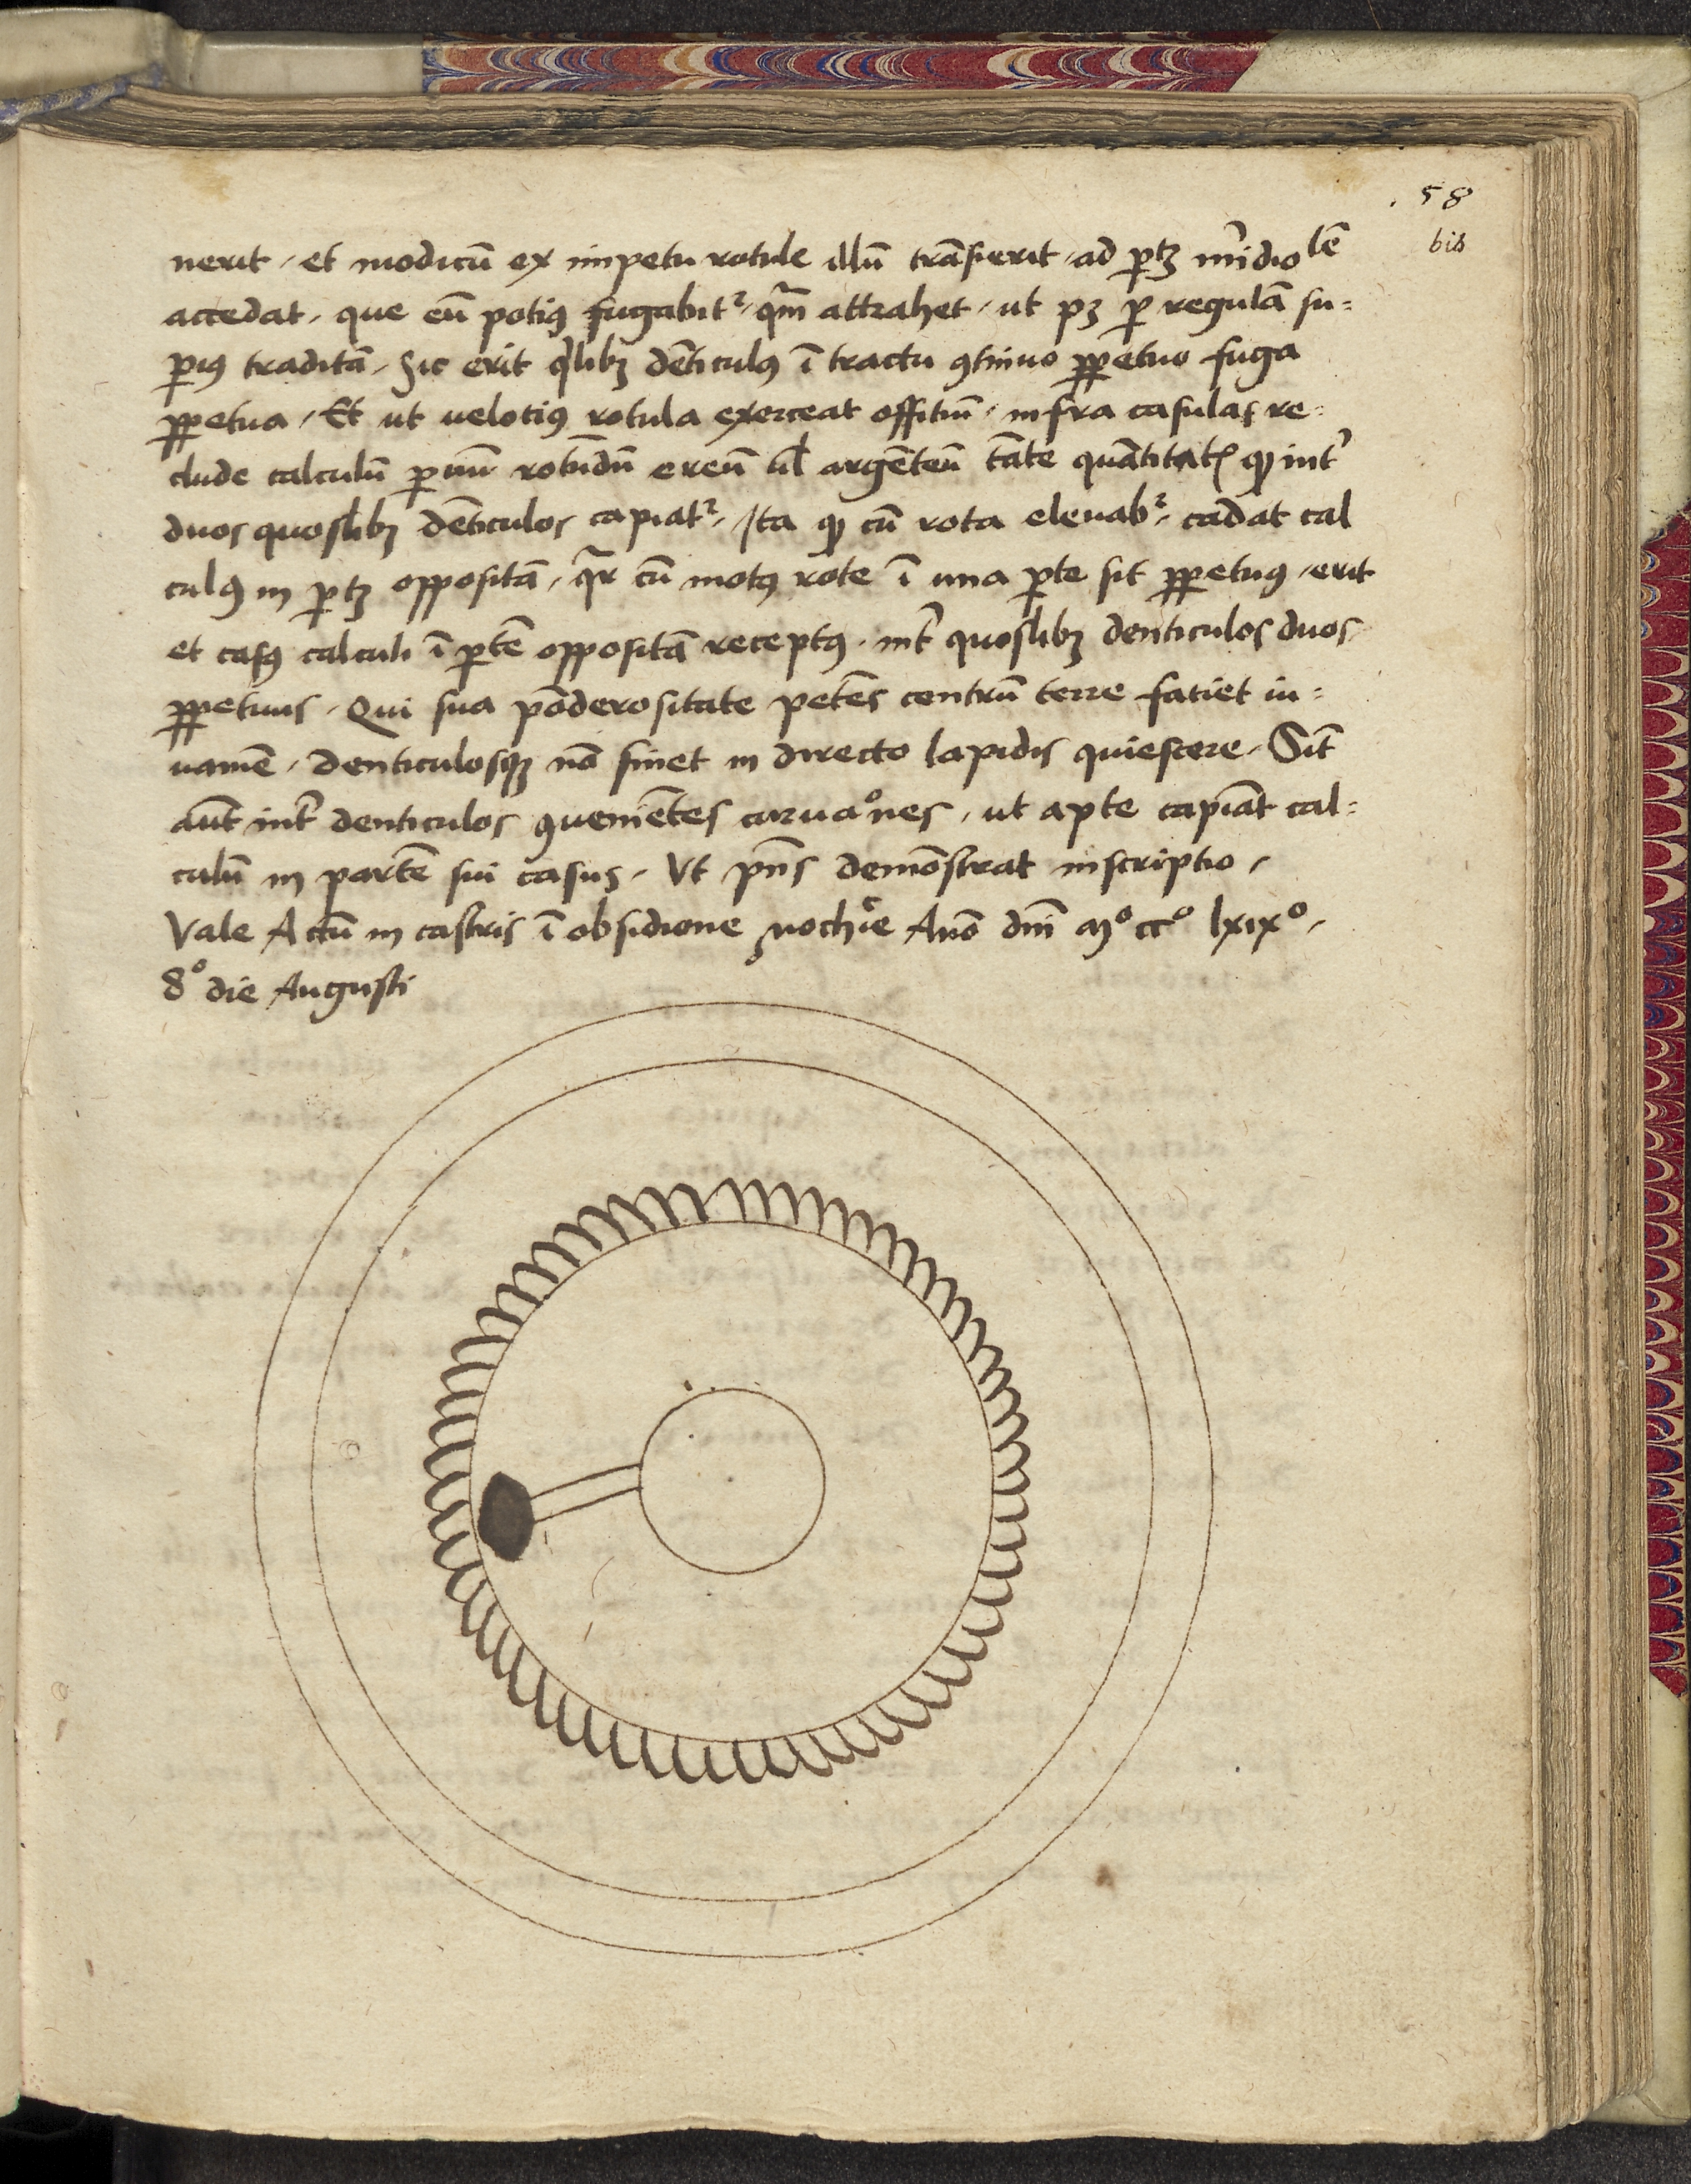 58
bis
nerit, et modicū ex impetu rotule illū trāsierit, ad ꝑtꝫ mͥdiolē
accedat, que eū potiꝰ fugabitᷣ, qᷓm attrahet, ut pꝫ ꝑ regulā su=
ꝑiꝰ traditā, Sic erit qͥlibꝫ dēticulꝰ ī tractu ꝯtinuo ꝑpetuo fuga
ꝑpetua, Et ut velotiꝰ rotula exerceat offitiū, infra casulas re=
clude calculū ꝑuū rotūdū ereū ul̄ argēteū tāte quātitatꝭ ꝙ intͬ
duos quoslibꝫ dēticulos capiatᷣ, Ita ꝙ cū rota eleuabᷣ, cadat cal
culꝰ in ꝑtꝫ oppositā, qᷓr cū motꝰ rote ī una ꝑte sit ꝑpetuꝰ, erit
et casꝰ calculi ī ꝑtē oppositā receptꝰ, intͬ quoslibꝫ denticulos duos
ꝑpetuus, Qui sua pōderositate petēs centrū terre fatiet iu=
uamē, denticulosqꝫ nō sinet in directo lapidis quiescere, Sīt
aūt intͬ denticulos ꝯueniētes curuaͦnes, ut apte capiāt cal=
culū in partē sui casus, Ut pn̄s demōstrat inscriptio,
Vale Actū in castris ī obsidione Anō dnī Mͦ ccͦ lxixͦ,
8ͦ die Augusti